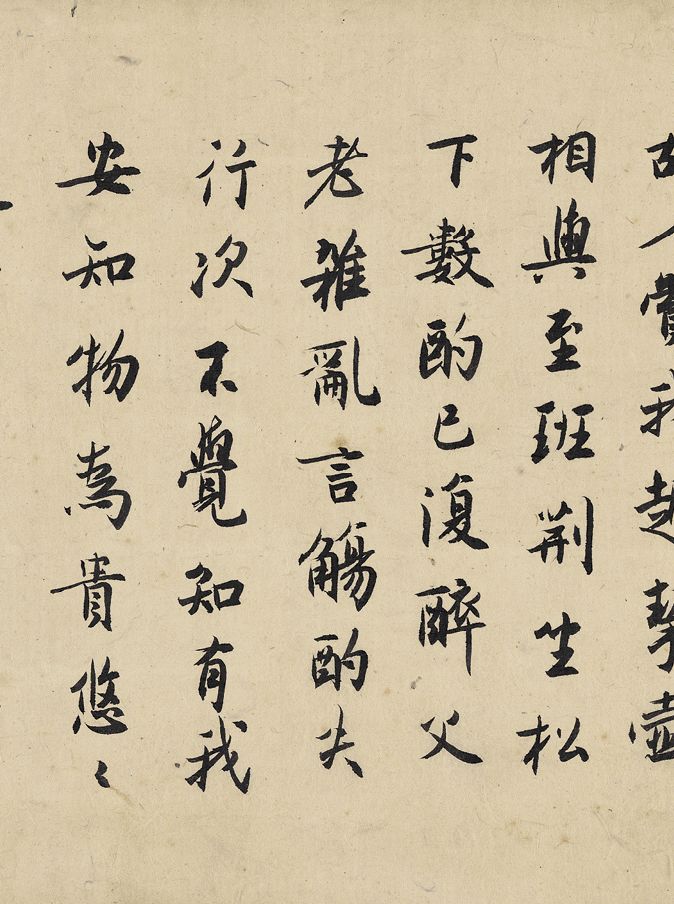 故人賞我趣挈壺
相與至班荊坐松
下數酌已復醉父
老雜亂言觴酌失
行次不覺知有我
安知物為貴悠〻